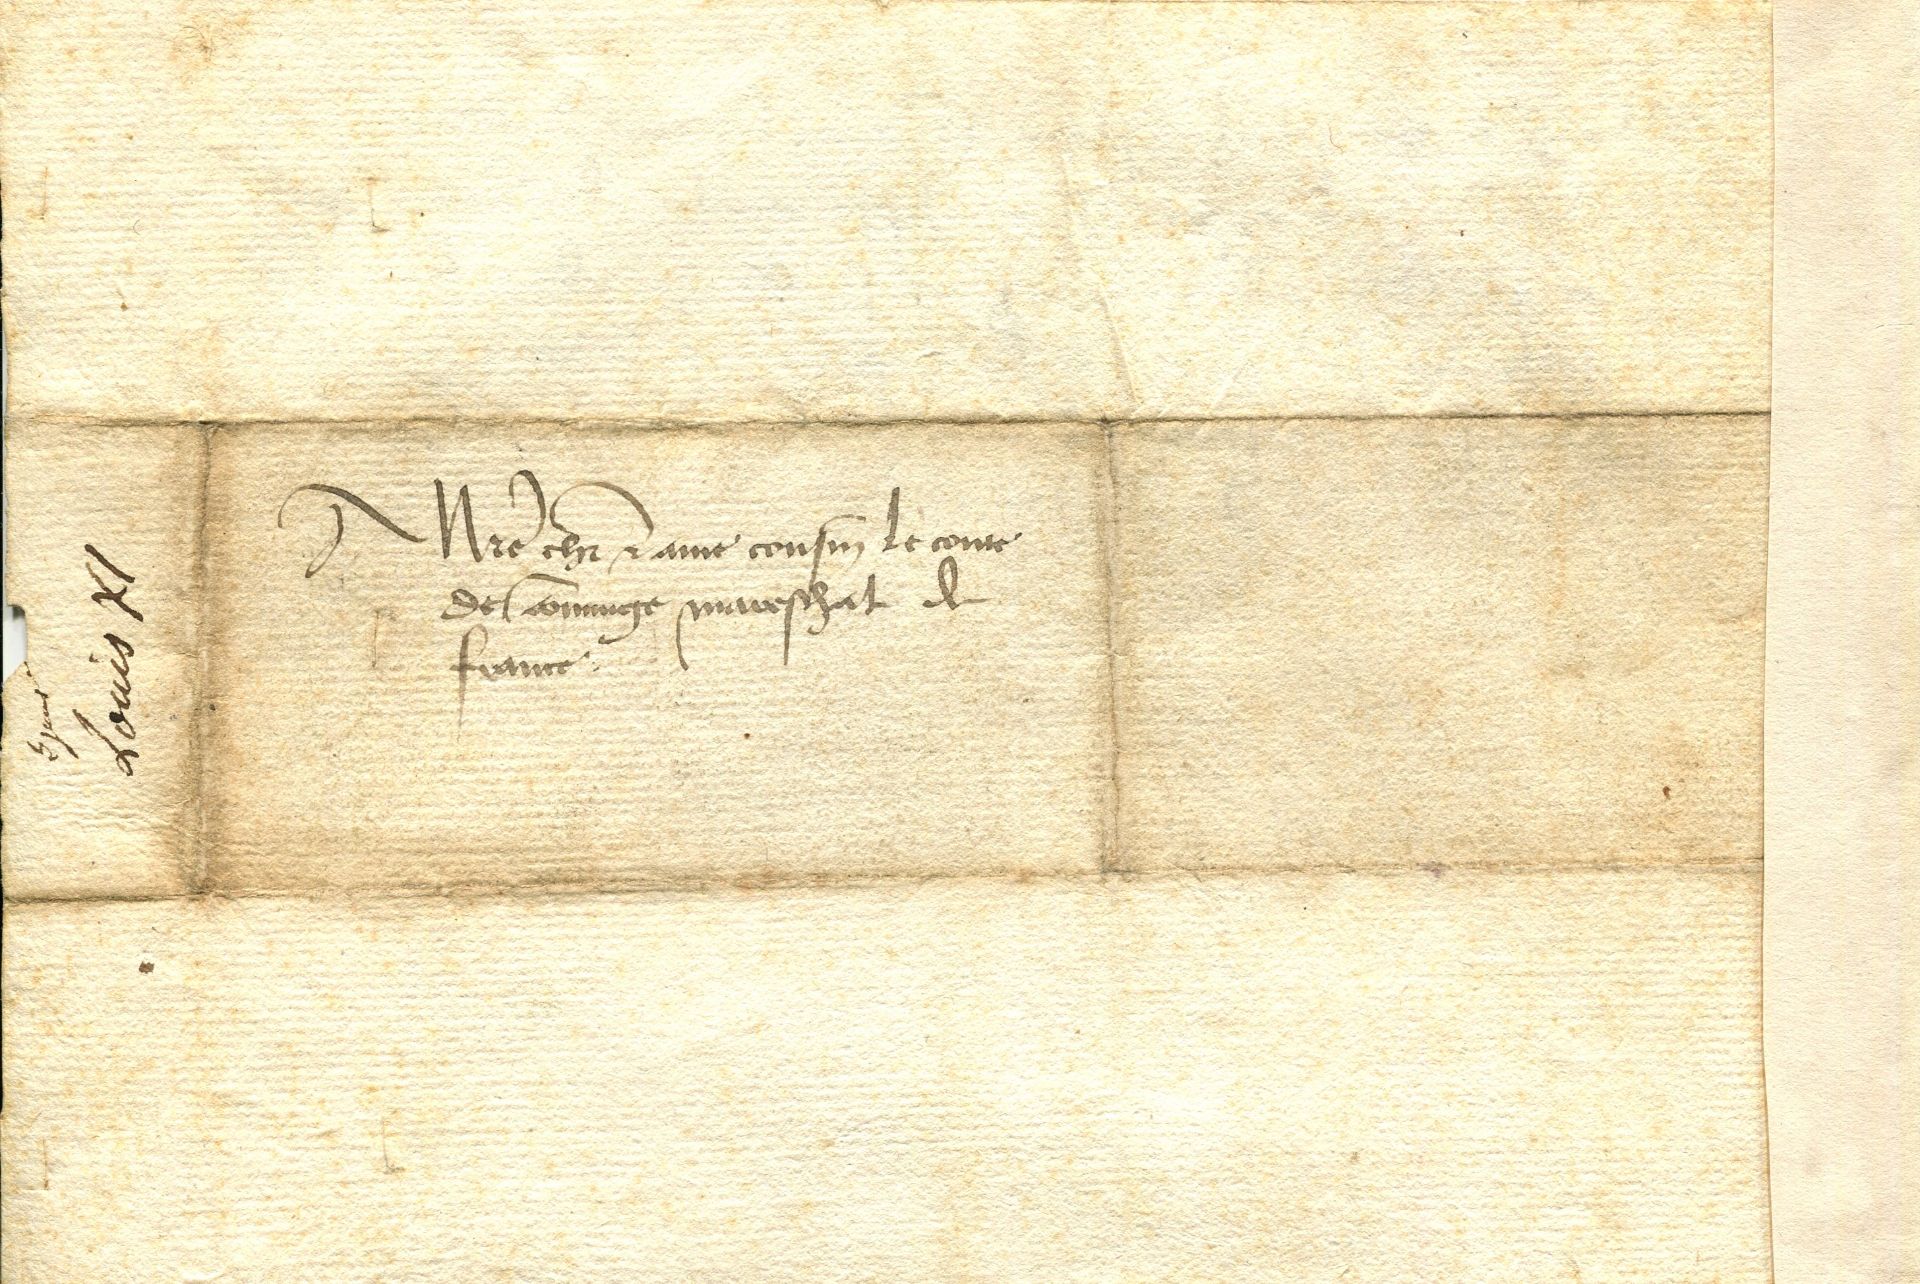 A Nre cher et ame cousin le conte
de Comminge mareschal de
france.
Louis XI